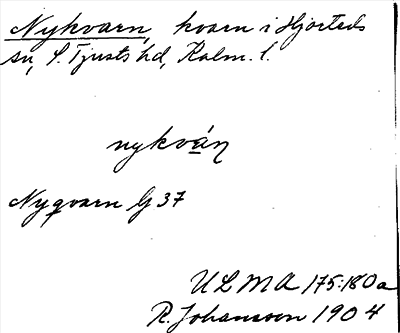 Nykvarn, kvarn i Hjorteds
sn, S. Tjusts hd, Kalm. l.
nykván
Nyqvarn G 37
ULMA 175:180a
R. Johansson 1904